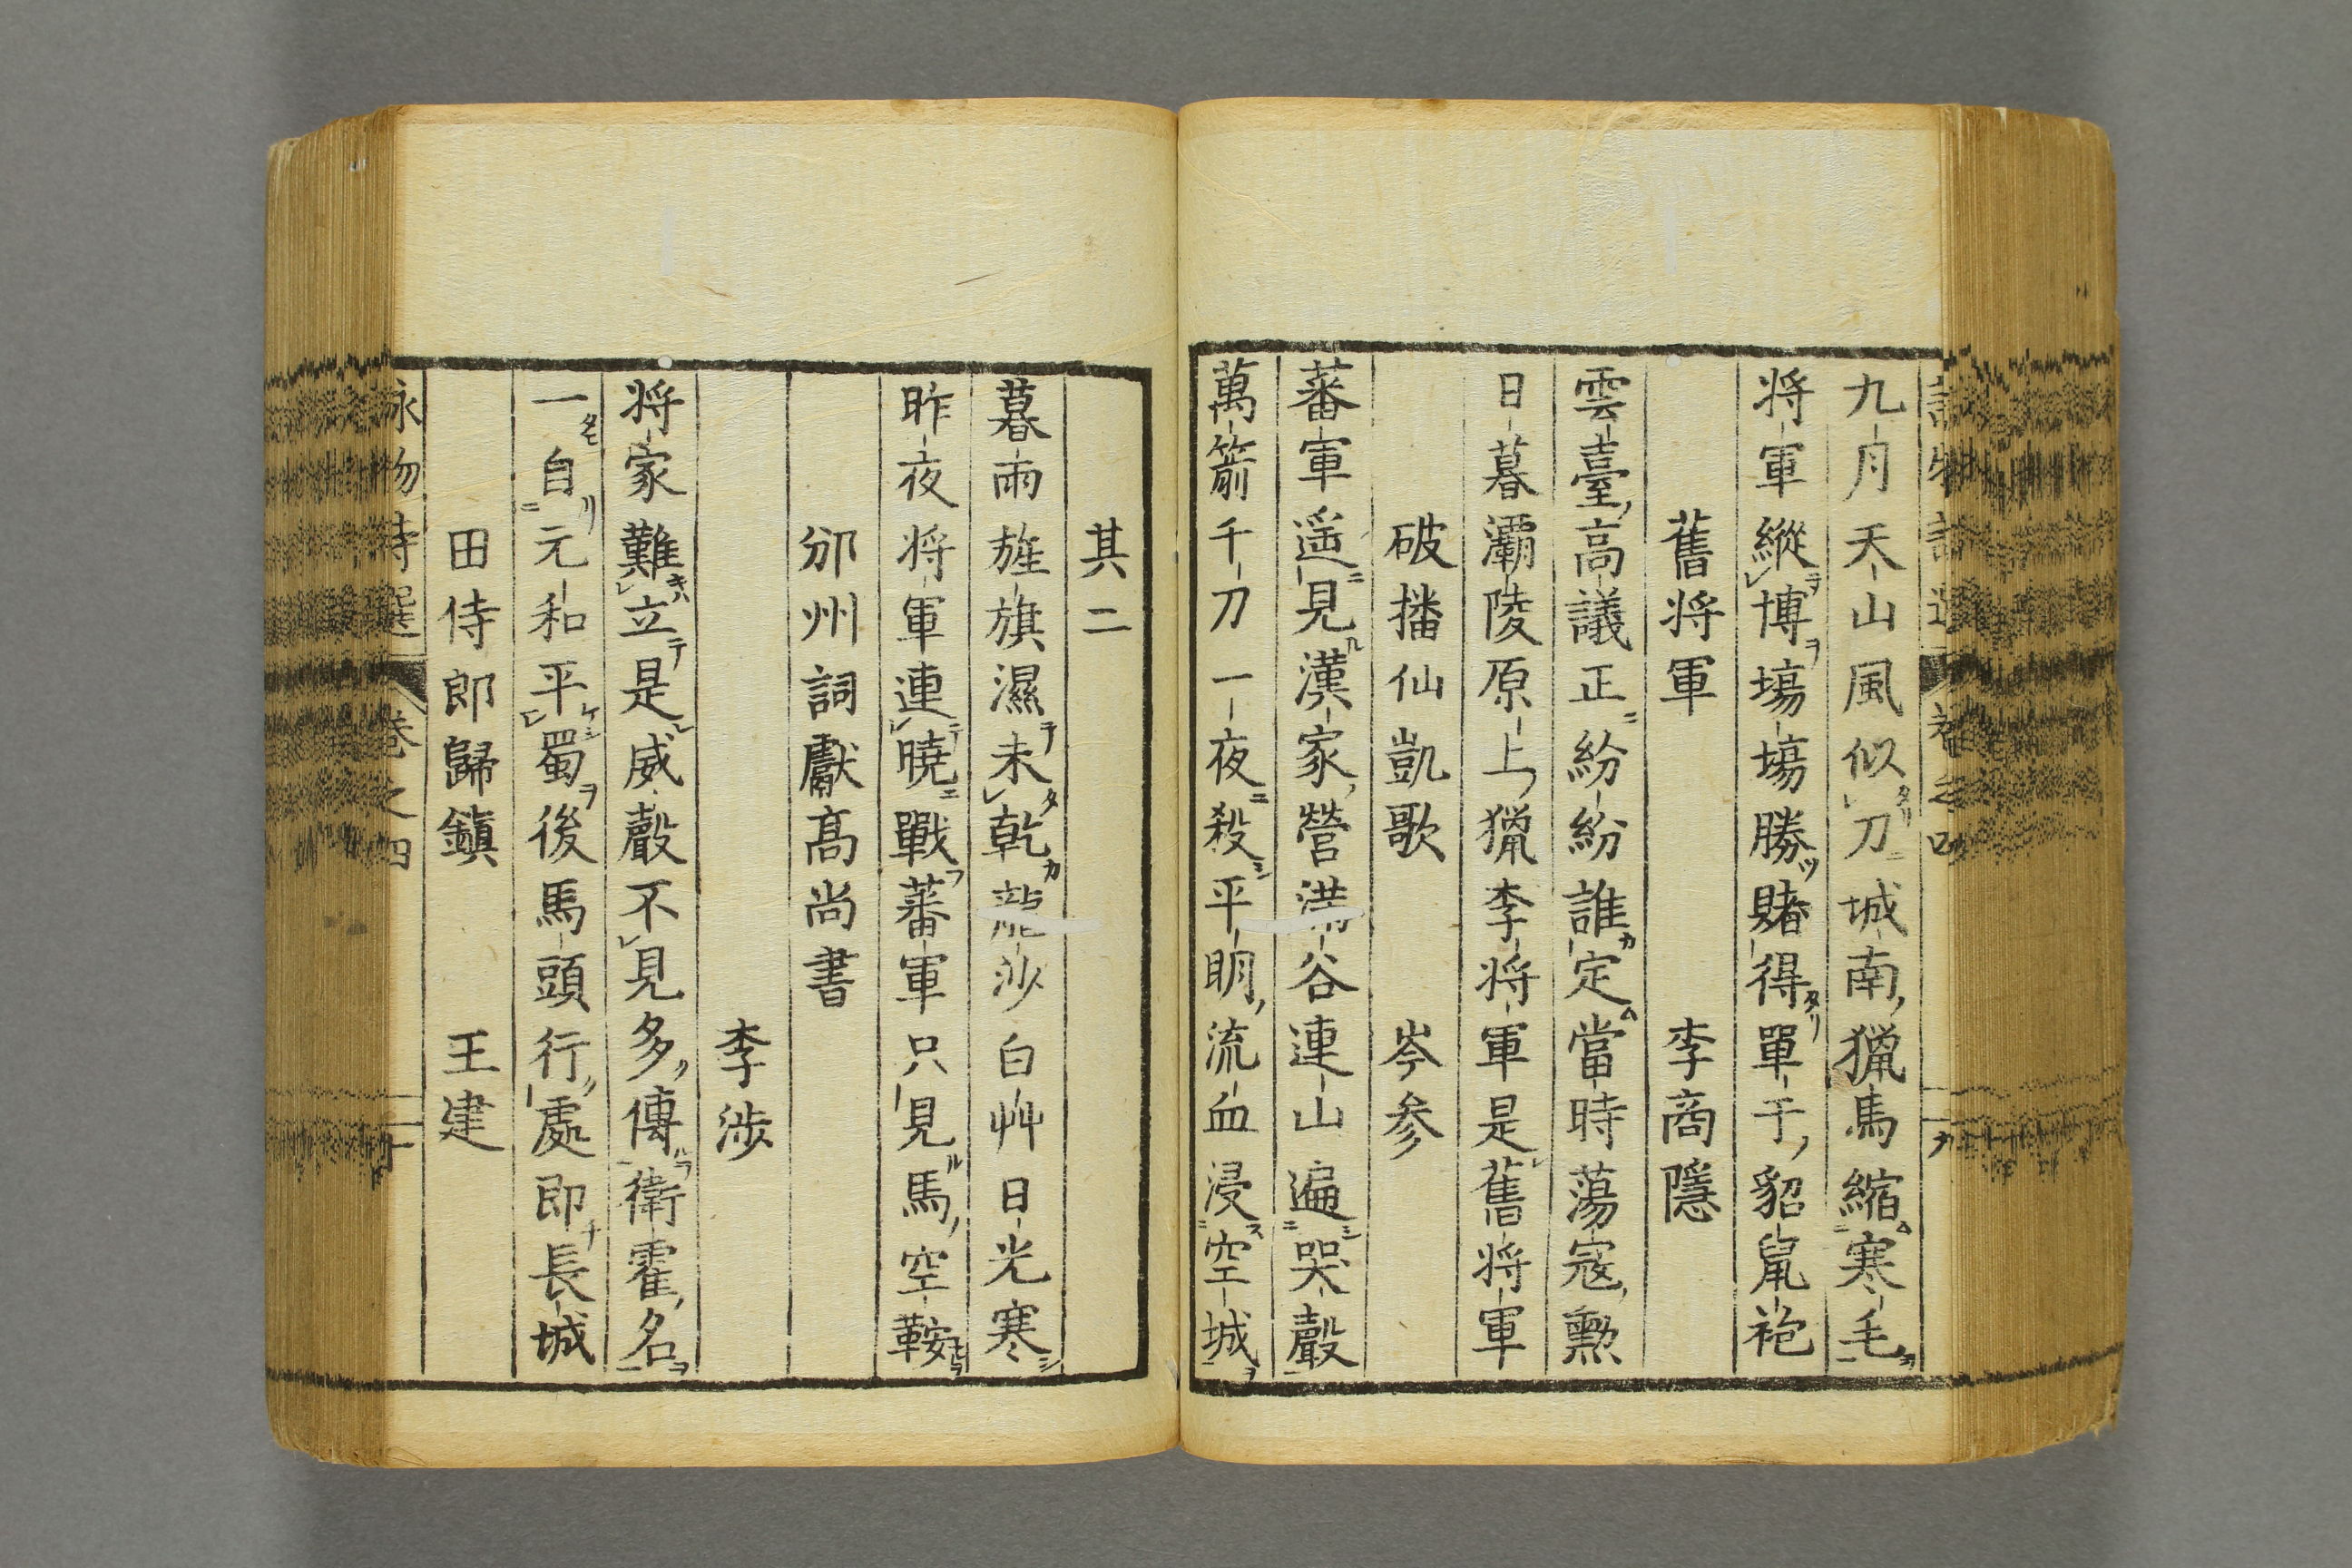 九月天山風似刀城南獵馬縮寒毛
将軍縱博塲塲勝賭得單于貂鼠袍
舊将軍 李商隱
雲臺高議正紛紛誰定當時蕩寇勲
日暮灞陵原上獵李将軍是舊将軍
破播仙凱歌 岑参
蕃軍遥見漢家營滿谷連山遍哭聲
萬箭千刀一夜殺平明流血浸空城
其二
暮雨旌旗濕未乾龍沙白艸日光寒
昨夜将軍連曉戰蕃軍只見馬空鞍
邠州詞獻高尚書
李渉
将家難立是威聲不見多傳衛霍名
一自元和平蜀後馬頭行處即長城
田侍郎歸鎭 王建
詠物詩選 卷之四 十